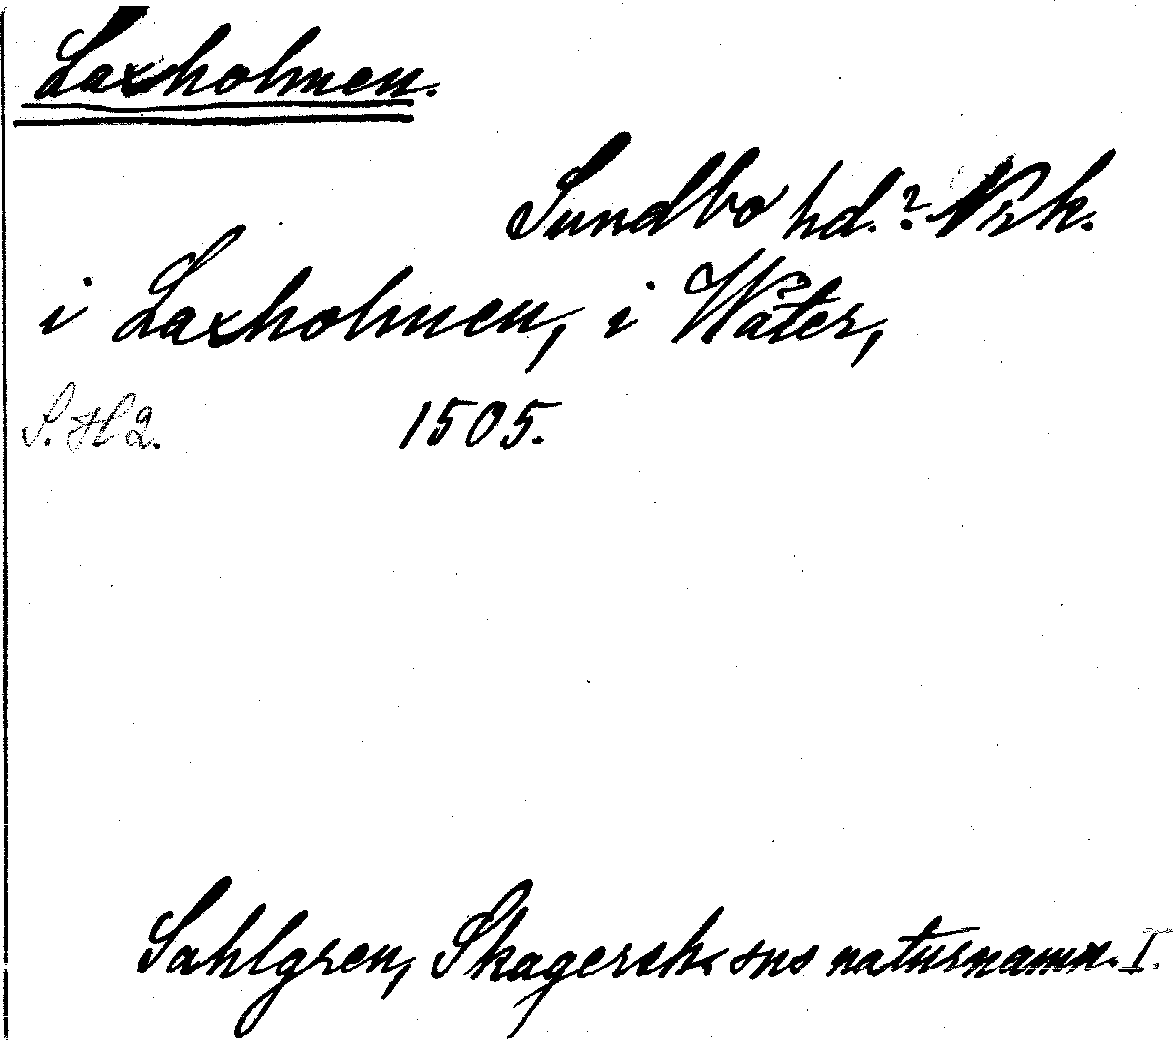 Laxholmen.
Sundbo hd.? Nrk.
i Laxholmen, i Wäter,
S. H 2. 1505.
Sahlgren, Skagersh. sns naturnamn. I.